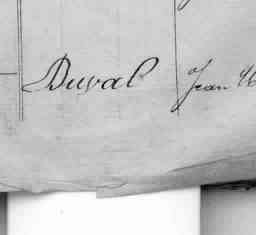 Duval Jean